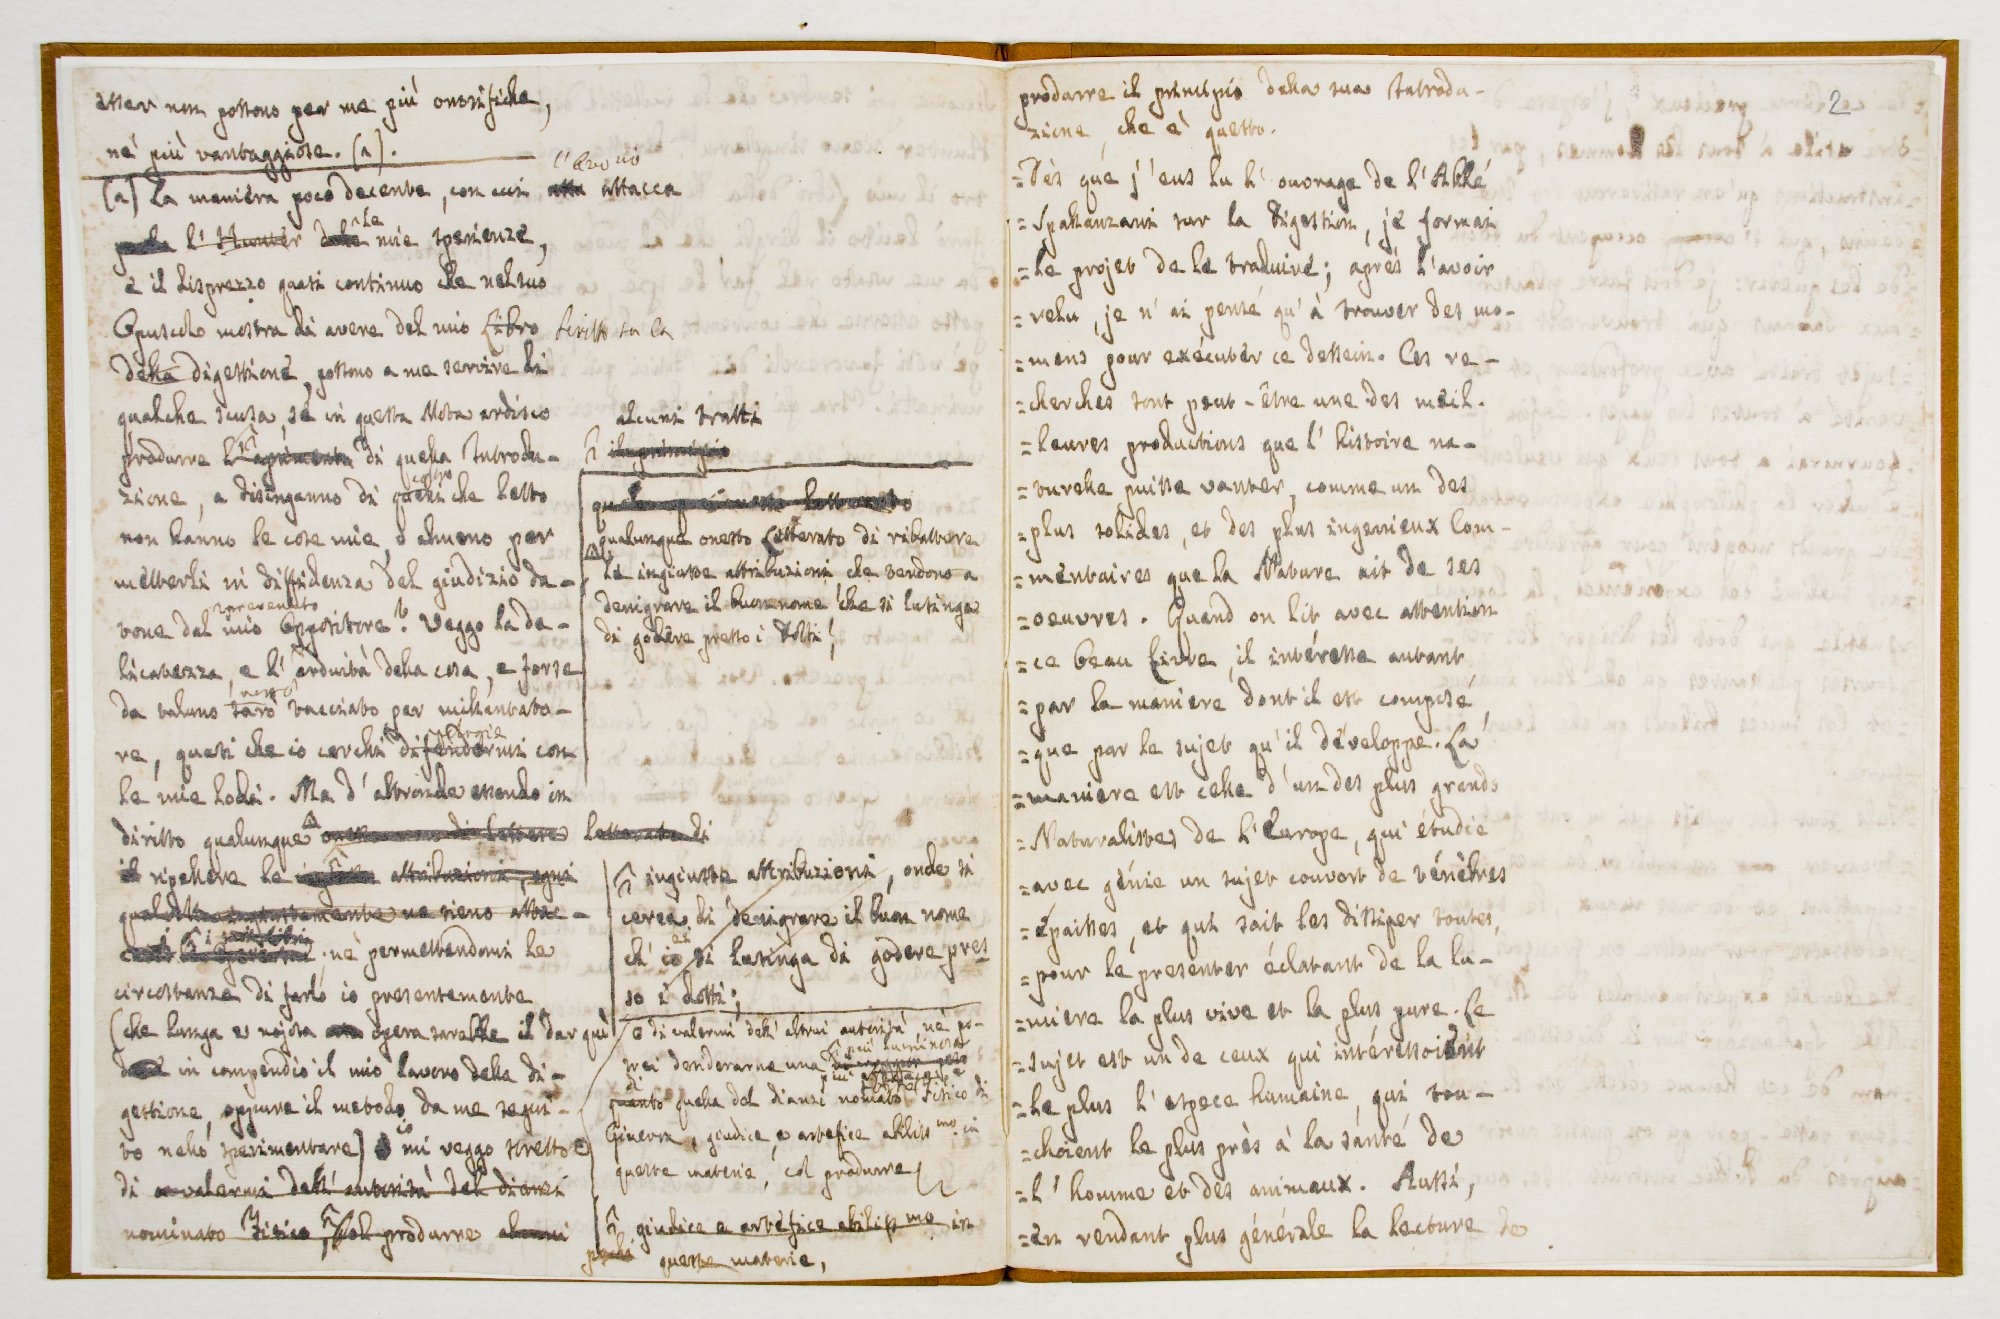 esser non possono per me più onorifiche,
nè più vantaggiose. (a).
(a) La maniera poco decente, con cui attacca
l'Hunter le mie sperienze,
e il disprezzo quasi continuo che nel suo
Opuscolo mostra di avere del mio Libro scritto su la
della digestione, possono a me servire di
qualche scusa, se in questa Nota ardisco
produrre di quella Introdu-
zione, a disinganno di coloro che letto
non hanno le cose mie, o almeno per
metterli in diffidenza del giudizio da-
tone dal mio prevenuto Oppositore. Veggo la de-
licatezza, e l'arduità della cosa, e forse
da taluno sarò tacciato per millantato-
re, quasi che io cerchi difendermi con
le mie lodi. Ma d'altronde essendo in
diritto qualunque onesto uomo di lettere letterato di
il ripellere le attribuzioni, ogni
qual volta ingiustamente ne sieno attac-
nè permettendomi le
circostanze di farlo io presentemente
(che lunga e nojosa opera sarebbe il dar quì
in compendio il mio lavoro della di-
gestione, oppure il metodo da me segui-
to nello sperimentare) io mi veggo stretto
di valermi dell'autorità del dianzi
nominato Fisico, col produrre alcuni
alcuni tratti
il principio
qualunque onesto Letterato di ribattere
le ingiuste attribuzioni che tendono a
denigrare il buon nome che si lusinga
di godere presso i Dotti;
ingiuste attribuzioni, onde si
cerca di denigrare il buon nome
ch'ei si lusinga di godere pres
so i dotti;
e di valermi dell'altrui autorità, nè po-
trei desiderarne una più luminosa
di quella del dianzi nomato Fisico di
Ginevra, giudice e artefice abiliss.mo in
queste materie, col produrre
giudice e artefice abiliss.mo in
queste materie,
2
produrre il principio della sua Introdu-
zione, che è questo.
=Dès que j'eus lu l'ouvrage de l'Abbé
=Spallanzani sur la Digestion, je formai
=le projet de le traduire; après l'avoir
=relu, je n'ai pensé qu'à trouver des mo-
=mens pour exécuter ce dessein. Ces re-
=cherches sont peut-être une des meil-
=leures productions que l'histoire na-
=turelle puisse vanter, comme un des
=plus solides, et des plus ingenieux Com-
=mentaires que la Nature ait de ses
=oeuvres. Quand on lit avec attention
=ce beau Livre, il intéresse autant
=par la maniere dont il est composé,
=que par le sujet qu'il développe. La
=maniere est celle d'un des plus grands
=Naturalistes de l'Europe, qui étudie
=avec génie un sujet couvert de ténèbres
=épaisses, et qui sait les dissiper toutes,
=pour le presenter éclatant de la lu-
=miere la plus vive et la plus pure. Le
=sujet est un de ceux qui intéressoient
=le plus l'espece humaine, qui tou-
=choient le plus près à la santé de
=l'homme et des animaux. Aussi,
=en rendant plus générale la lecture de